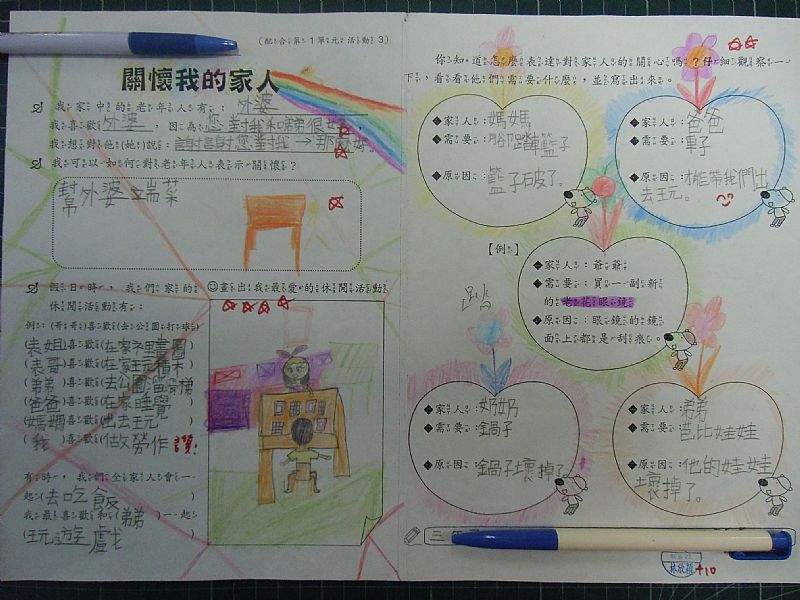 (配合第1單元活動3)
關懷我的家人
我家中的老年人有：外婆
我喜歡外婆，因為您對我和弟弟很好，
我想對他(她)說：謝謝您對我那麼好
我可以如何對老年人表示關懷？
幫外婆端菜
假日時，我們家的休閒活動有：
例：(哥哥)喜歡(去公園打球)
(表姐)喜歡(在家裡畫圖)
(表哥)喜歡(在家玩積木)
(弟弟)喜歡(去公園溜滑梯)
(爸爸)喜歡(在家睡覺)
(媽媽)喜歡(出去玩)
(我)喜歡(做勞作) 讚!
有時，我們全家人會一
起(去吃飯)
我最喜歡和(弟弟)一起
(玩遊戲)
畫出我最愛的休閒活動
你知道怎麼表達對家人的關心嗎？仔細觀察一
下，看看他們需要什麼，並寫出來。
家人：媽媽
需要：腳踏車籃子
原因：籃子破了。
家人：爸爸
需要：車子
原因：才能帶我們出
去玩。
【例】
家人：爺爺
需要：買一副新
的老花眼鏡
原因：眼鏡的鏡
面上都是刮痕。
踏
家人：奶奶
需要：鍋子
原因：鍋子壞掉了。
家人：弟弟
需要：芭比娃娃
原因：他的娃娃
壞掉了。
三
+10